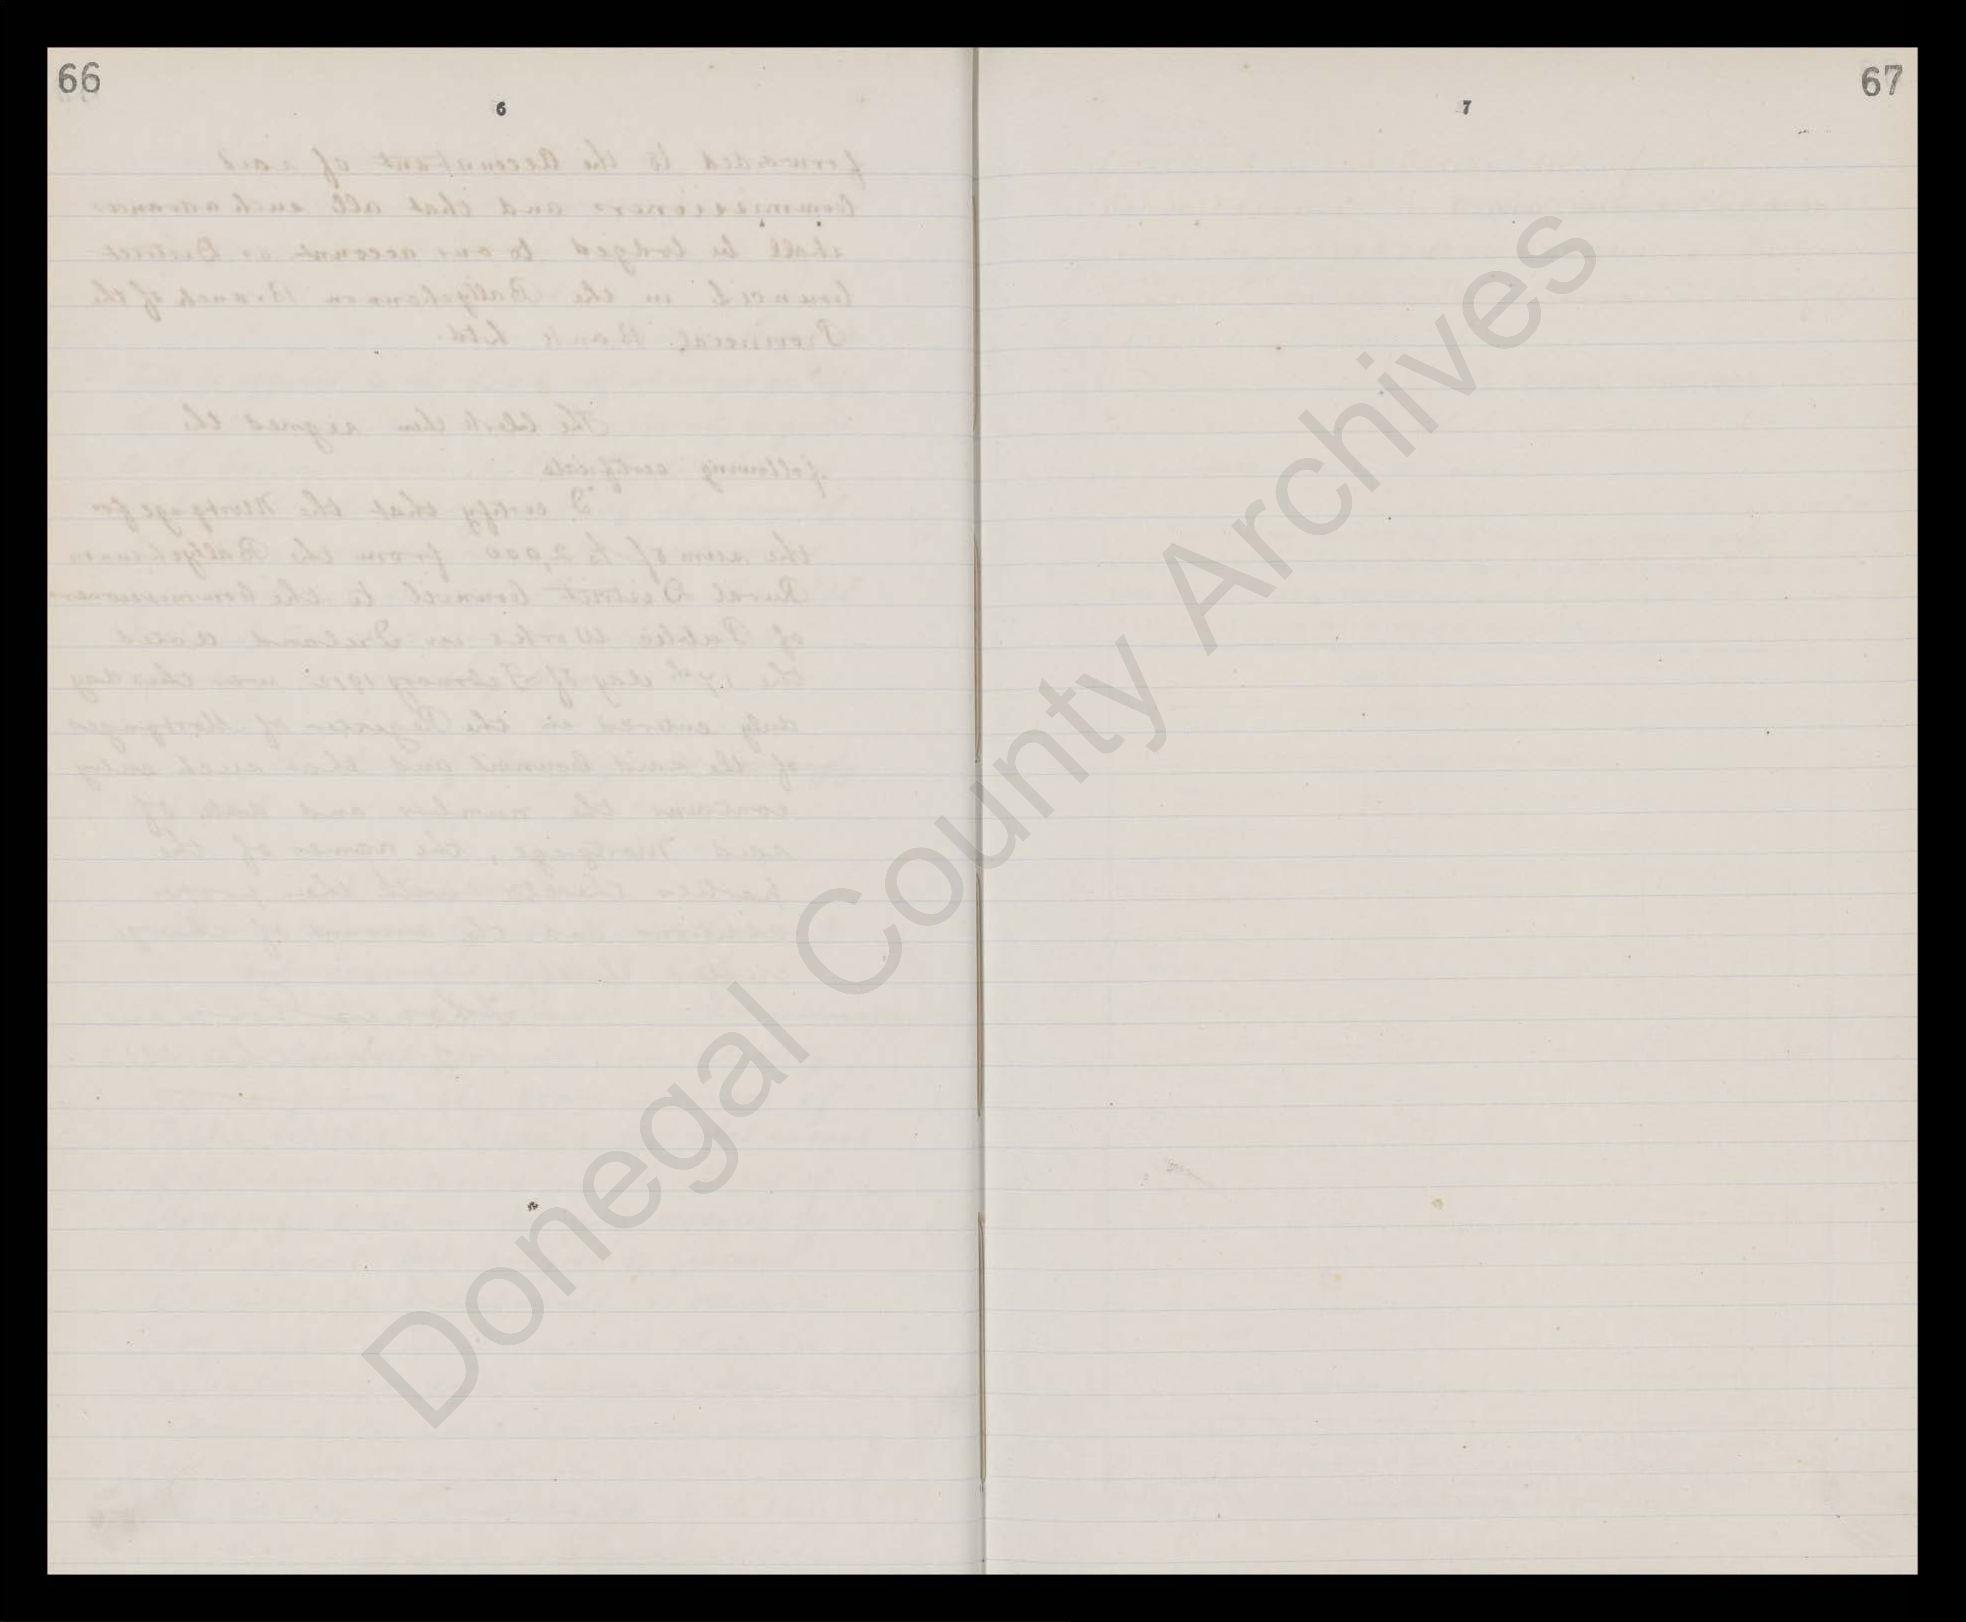 66
6
forwarded to the Accountant of said
Commissioners and that all such advances
shall be lodged to our account as District
Council in the Ballyshannon Branch of the
Provincial Bank Ltd.
The Clerk then signed the
following certificate
I certify that the Mortgage for
the sum of £2,000 from the Ballyshannon
Rural District Council to the Commissioners
of Public Works in Ireland dated
the 17th day of February 1912 was this day
duly entered in the Register of Mortgages
of the said Council and that such entry
contains the number and date of
said Mortgage, the names of the
parties thereto with their
and the amount of
67
7
Donegal County Archives